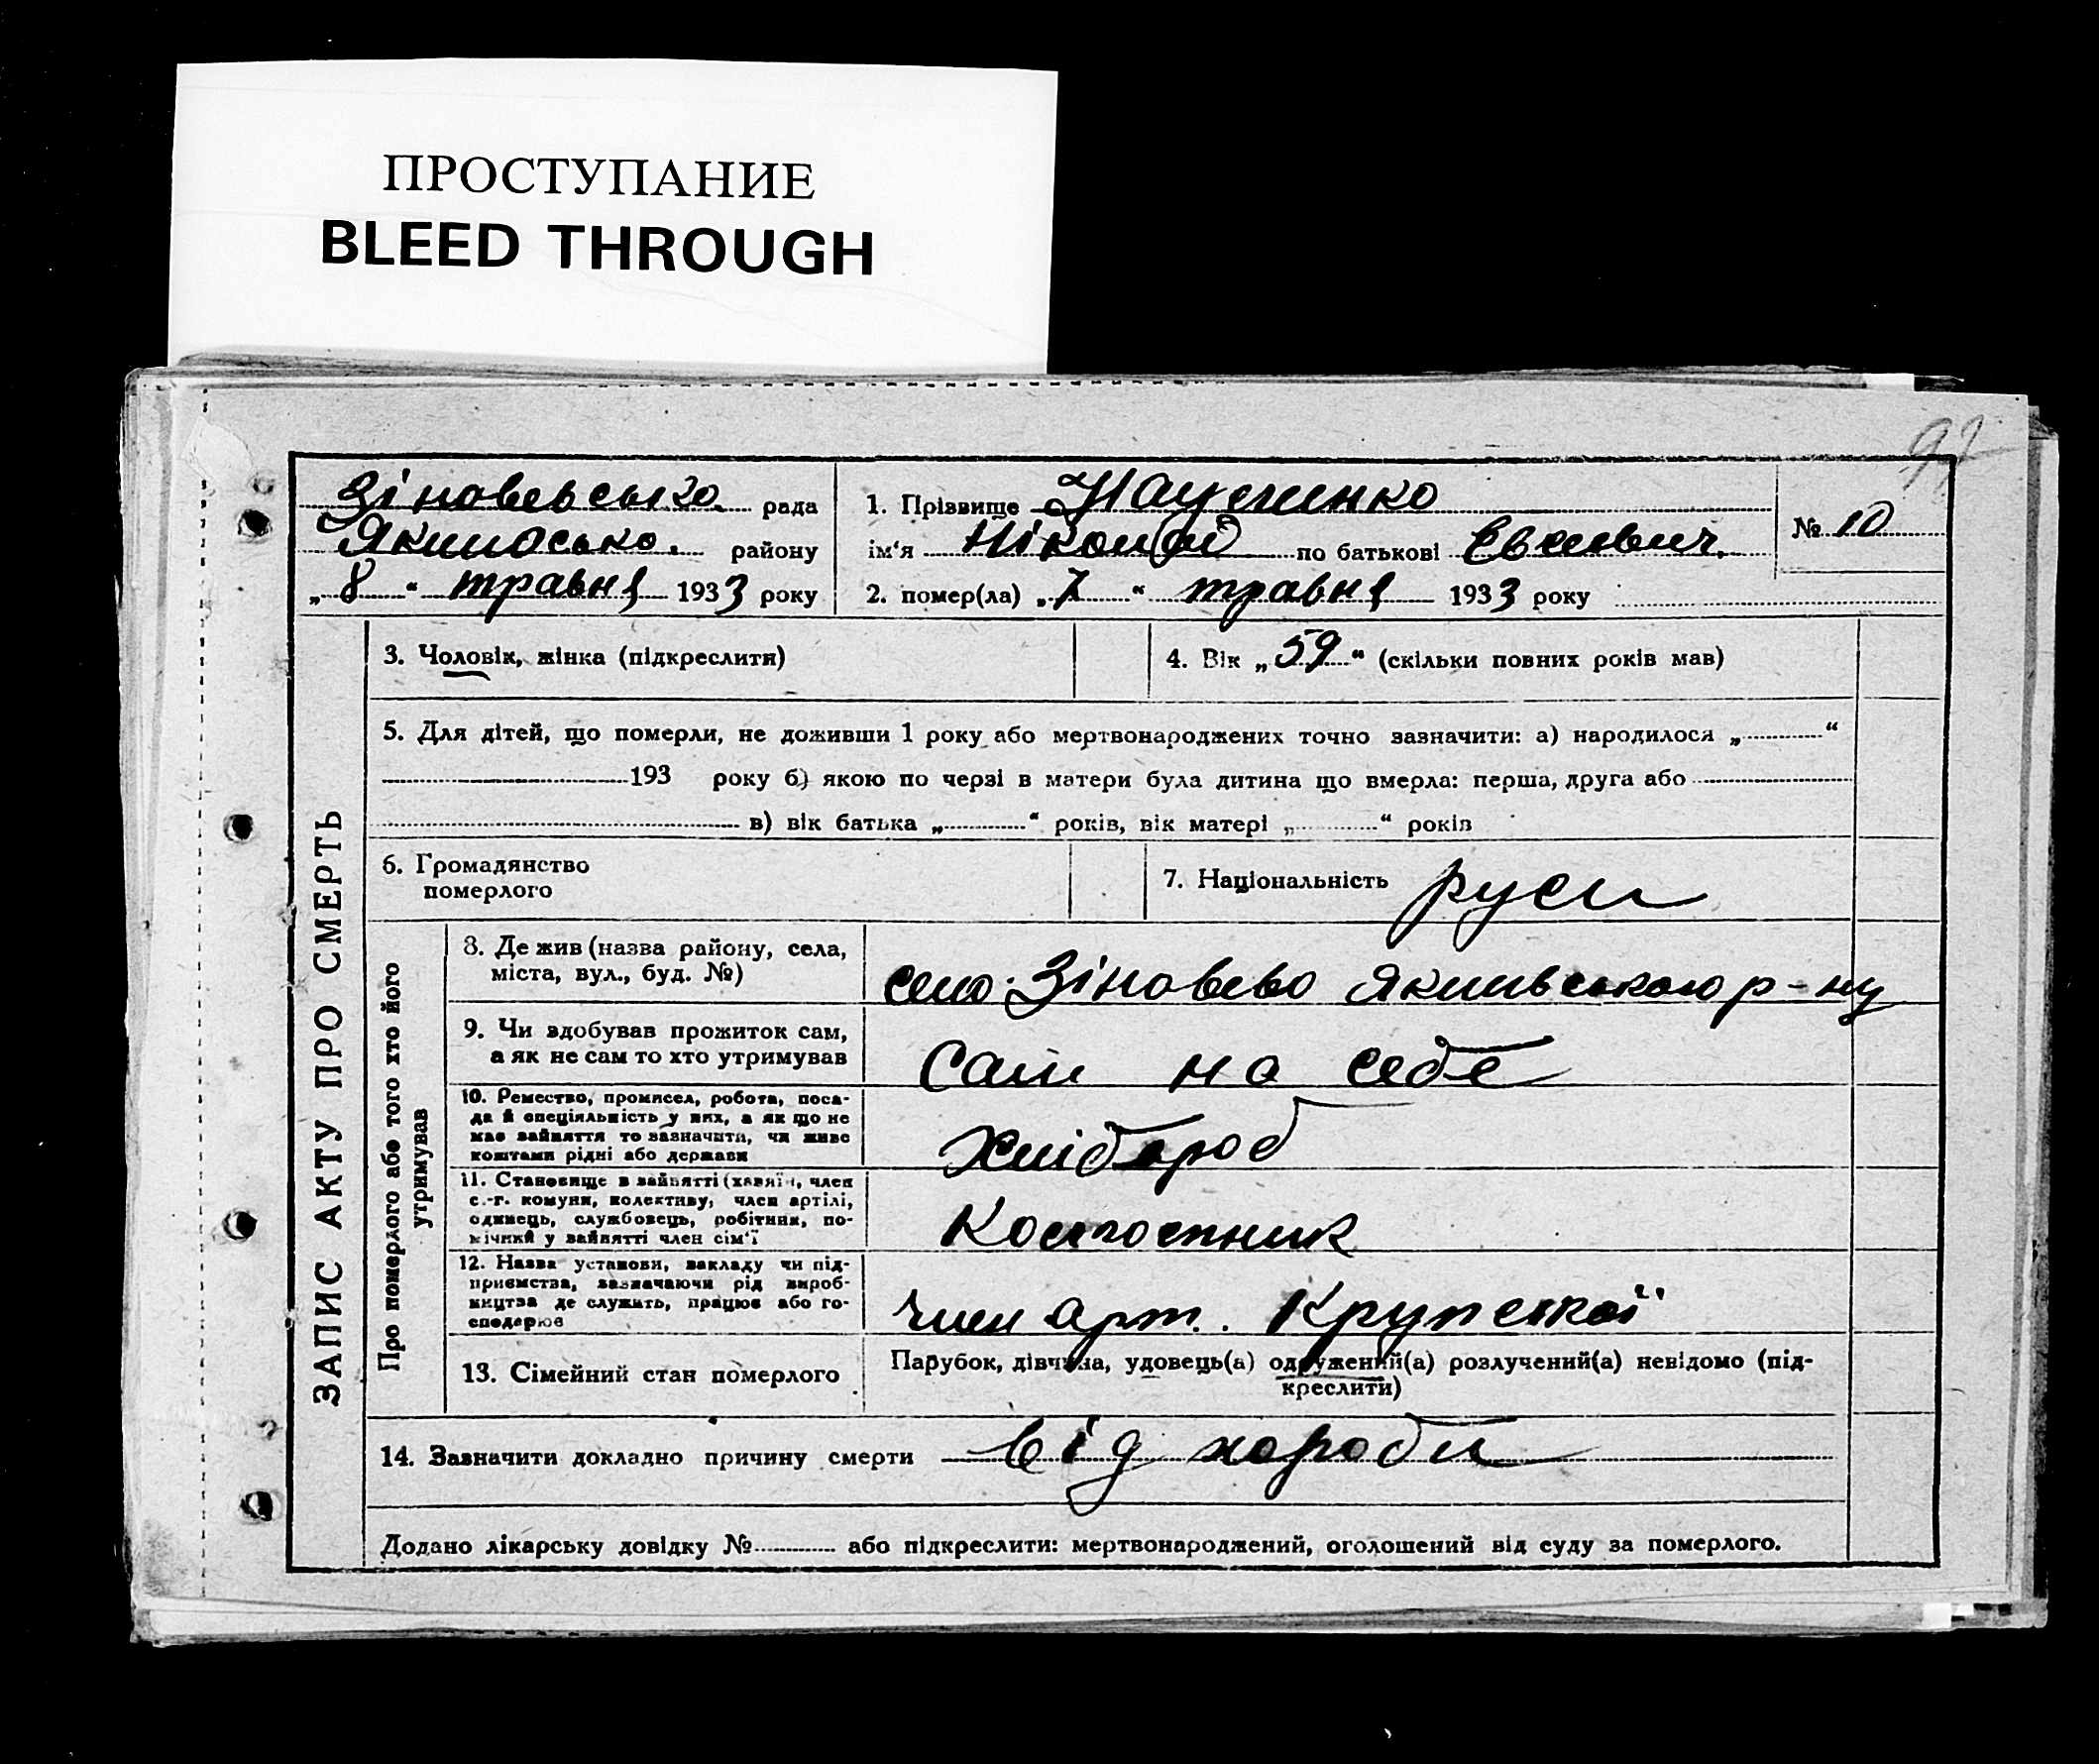 ПРОСТУПАНИЕ
BLEED THROUGH
92
Зіновевсько рада
Якимосько. району
„ 8 “ травня 1933 року
1. Прізвище Науменко
ім‘я по батькові
2. помер(ла) „ 7 “ травня 1933 року
№ 10
ЗАПИС АКТУ ПРО СМЕРТЬ
3. Чоловік, жінка (підкреслити)
4. Вік „ 59 “ (скільки повних років мав)
5. Для дітей, що померли, не доживши 1 року або мертвонароджених точно зазначити: а) народилося „ “
193 року б) якою по черзі в матери була дитина що вмерла: перша, друга або
в) вік батька „ “ років, вік матері „ “ років
6. Громадянство
померлого
7. Національність руси
Про померлого або того хто його
утримував
8. Де жив (назва району, села,
міста, вул., буд. №)
село Зіновьево Якимвського р-ну
9. Чи здобував прожиток сам,
а як не сам то хто утримував
Сам на себе
10. Ремество, промисел, робота, поса-
да й спеціяльність у них, а як що не
має зайняття то зазначити, чи живе
коштами рідні або держави
Хлібороб
11. Становище в зайнятті (хазяїн, член
с.-г. комуни, колективу, член артілі,
одинець, службовець, робітник, по-
мічний у зайнятті член сім‘ї
Колгоспник
12. Назва установи, закладу чи під-
приємства, зазначаючи рід вироб-
ництва де служить, працює або го-
сподарює
член арт. Крупской
13. Сімейний стан померлого
Парубок, дівчина, удовець(а) одружений(а) розлучений(а) невідомо (під-
креслити)
14. Зазначити докладно причину смерти від хороби
Додано лікарську довідку № або підкреслити: мертвонароджений, оголошений від суду за померлого.